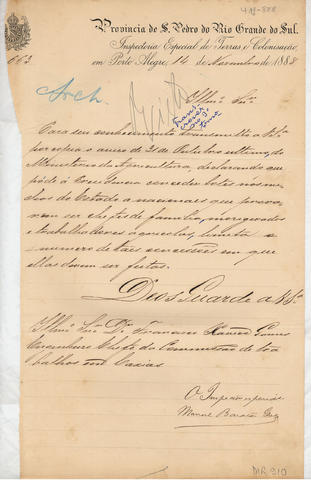 419-888
Provincia de S. Pedro do Rio Grande do Sul.
Inspectoria Especial de Terras e Colonisação,
663 em Porto Alegre, 14 de Novembro de 1888
Arch. Illmo Snr.
Para seu conhecimento transmitto a V. Sa
por copia o aviso de 21 de Outubro ultimo, do
Ministerio da Agricultura, declarando que
póde a conceder lotes nos nu-
cleos do Estado a nacionaes que provа-
rem ser chefes de familia, morigerados
e trabalhadores agricolas, limita
o numero de taes concessões em que
ellas devem ser feitas.
Deos Guarde a V. Sa
Illmo Snr. Dr. Francisco Xavier
Engenheiro Chefe da Commissão de tra-
balhos em Caxias
O Inspector especial
Manoel Barata
DIR 910